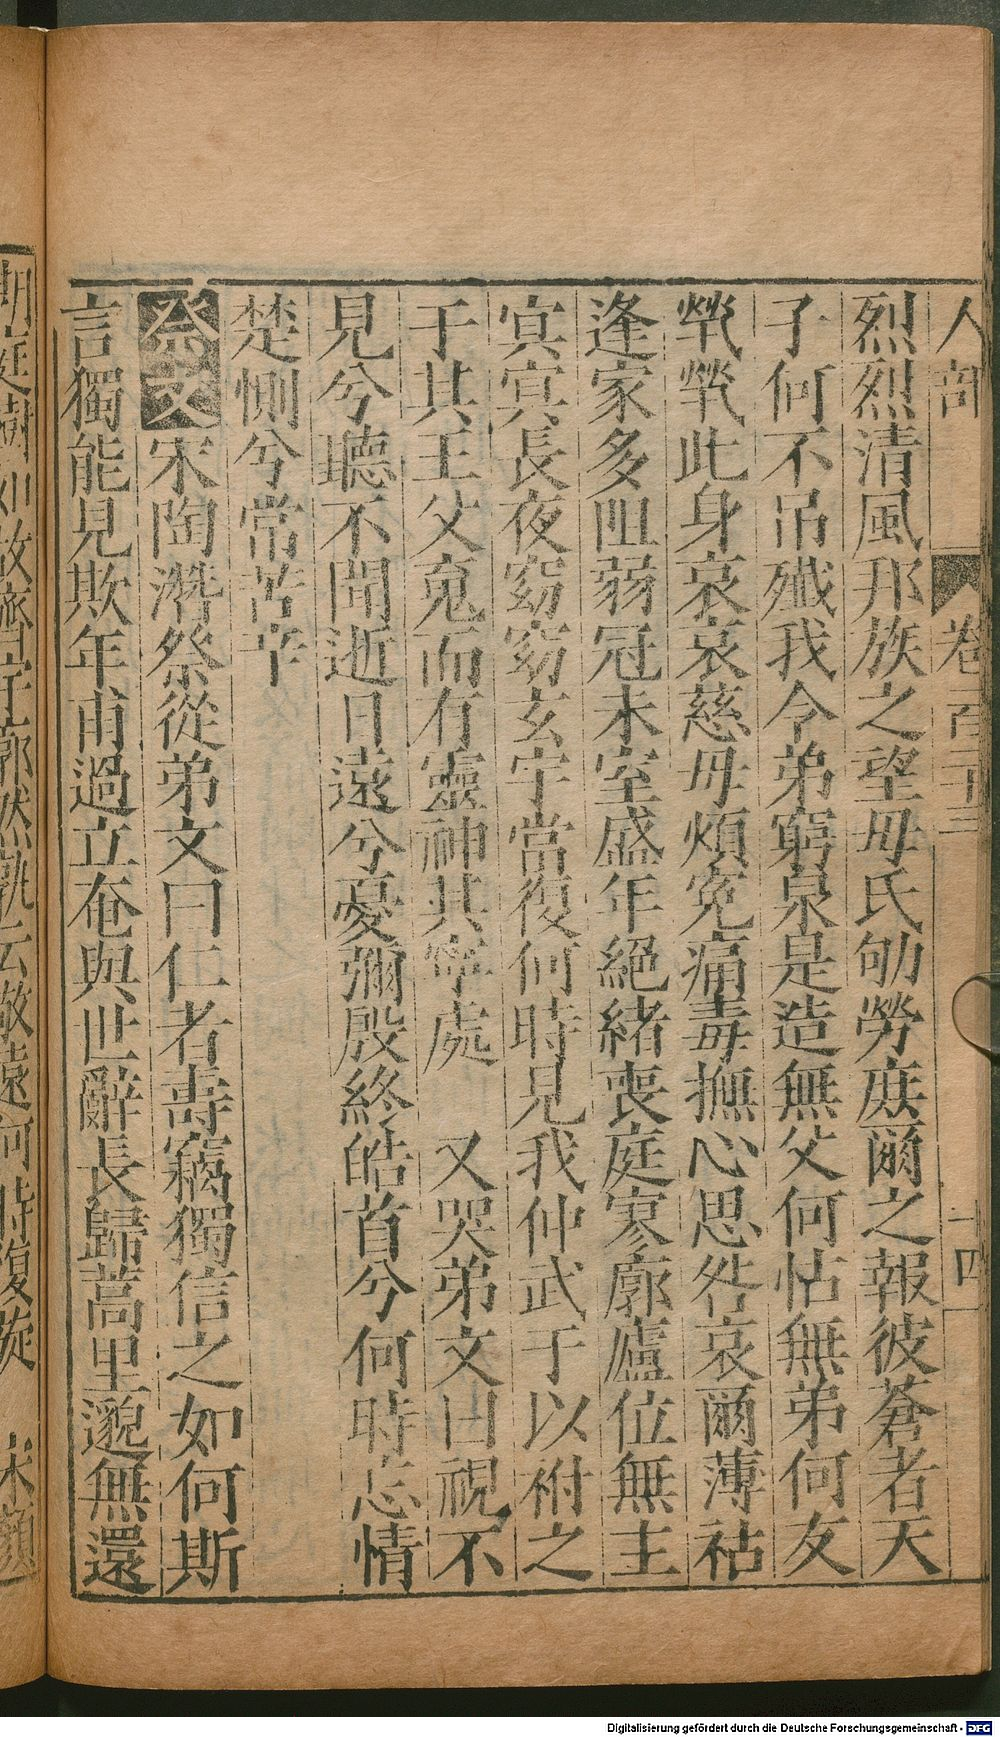 人部 卷一百二十三 十四
烈烈清風邦族之望母氏劬勞庶爾之報彼蒼者天
子何不吊殱我令弟窮泉是造無父何怙無弟何友
煢煢此身哀哀慈母煩寃痛毒撫心思咎哀爾薄祜
逢家多阻弱冠未室盛年絕緒喪庭寥廓廬位無主
㝠㝠長夜窈窈玄宇當復何時見我仲武于以祔之
于其王父寃而有靈神其寧處 又哭弟文曰視不
見兮聽不聞逝日遠兮憂彌殷終皓首兮何時忘情
楚惻兮常苦辛
祭文宋陶潛祭從弟文曰仁者壽竊獨信之如何斯
言獨能見欺年甫過立奄與世辭長歸蒿里邈無還
期庭樹如故齋宇廓然孰云敬遠何時復旋 宋顏
Digitalisierung gefördert durch die Deutsche Forschungsgemeinschaft - DFG